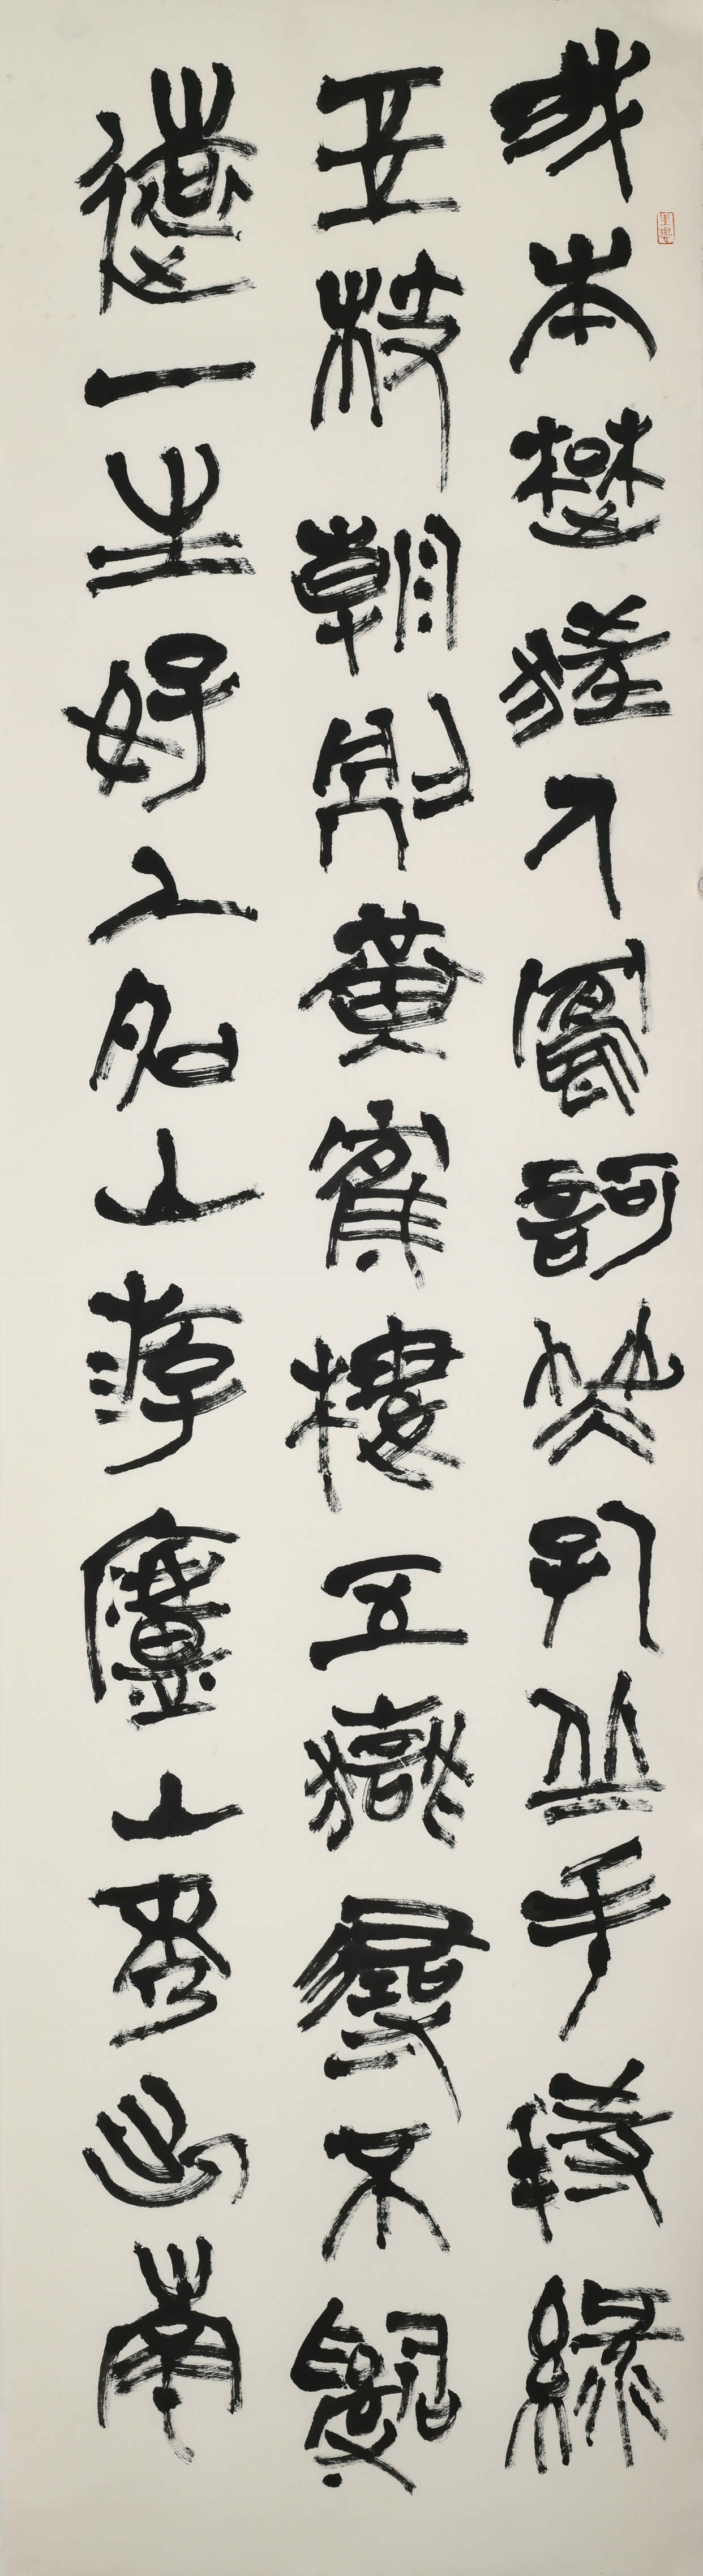 我本楚狂人鳳歌笑孔丘手持綠
玉杖朝別黃鶴樓五嶽尋不辭
遠一生好入名山游廬山秀出南